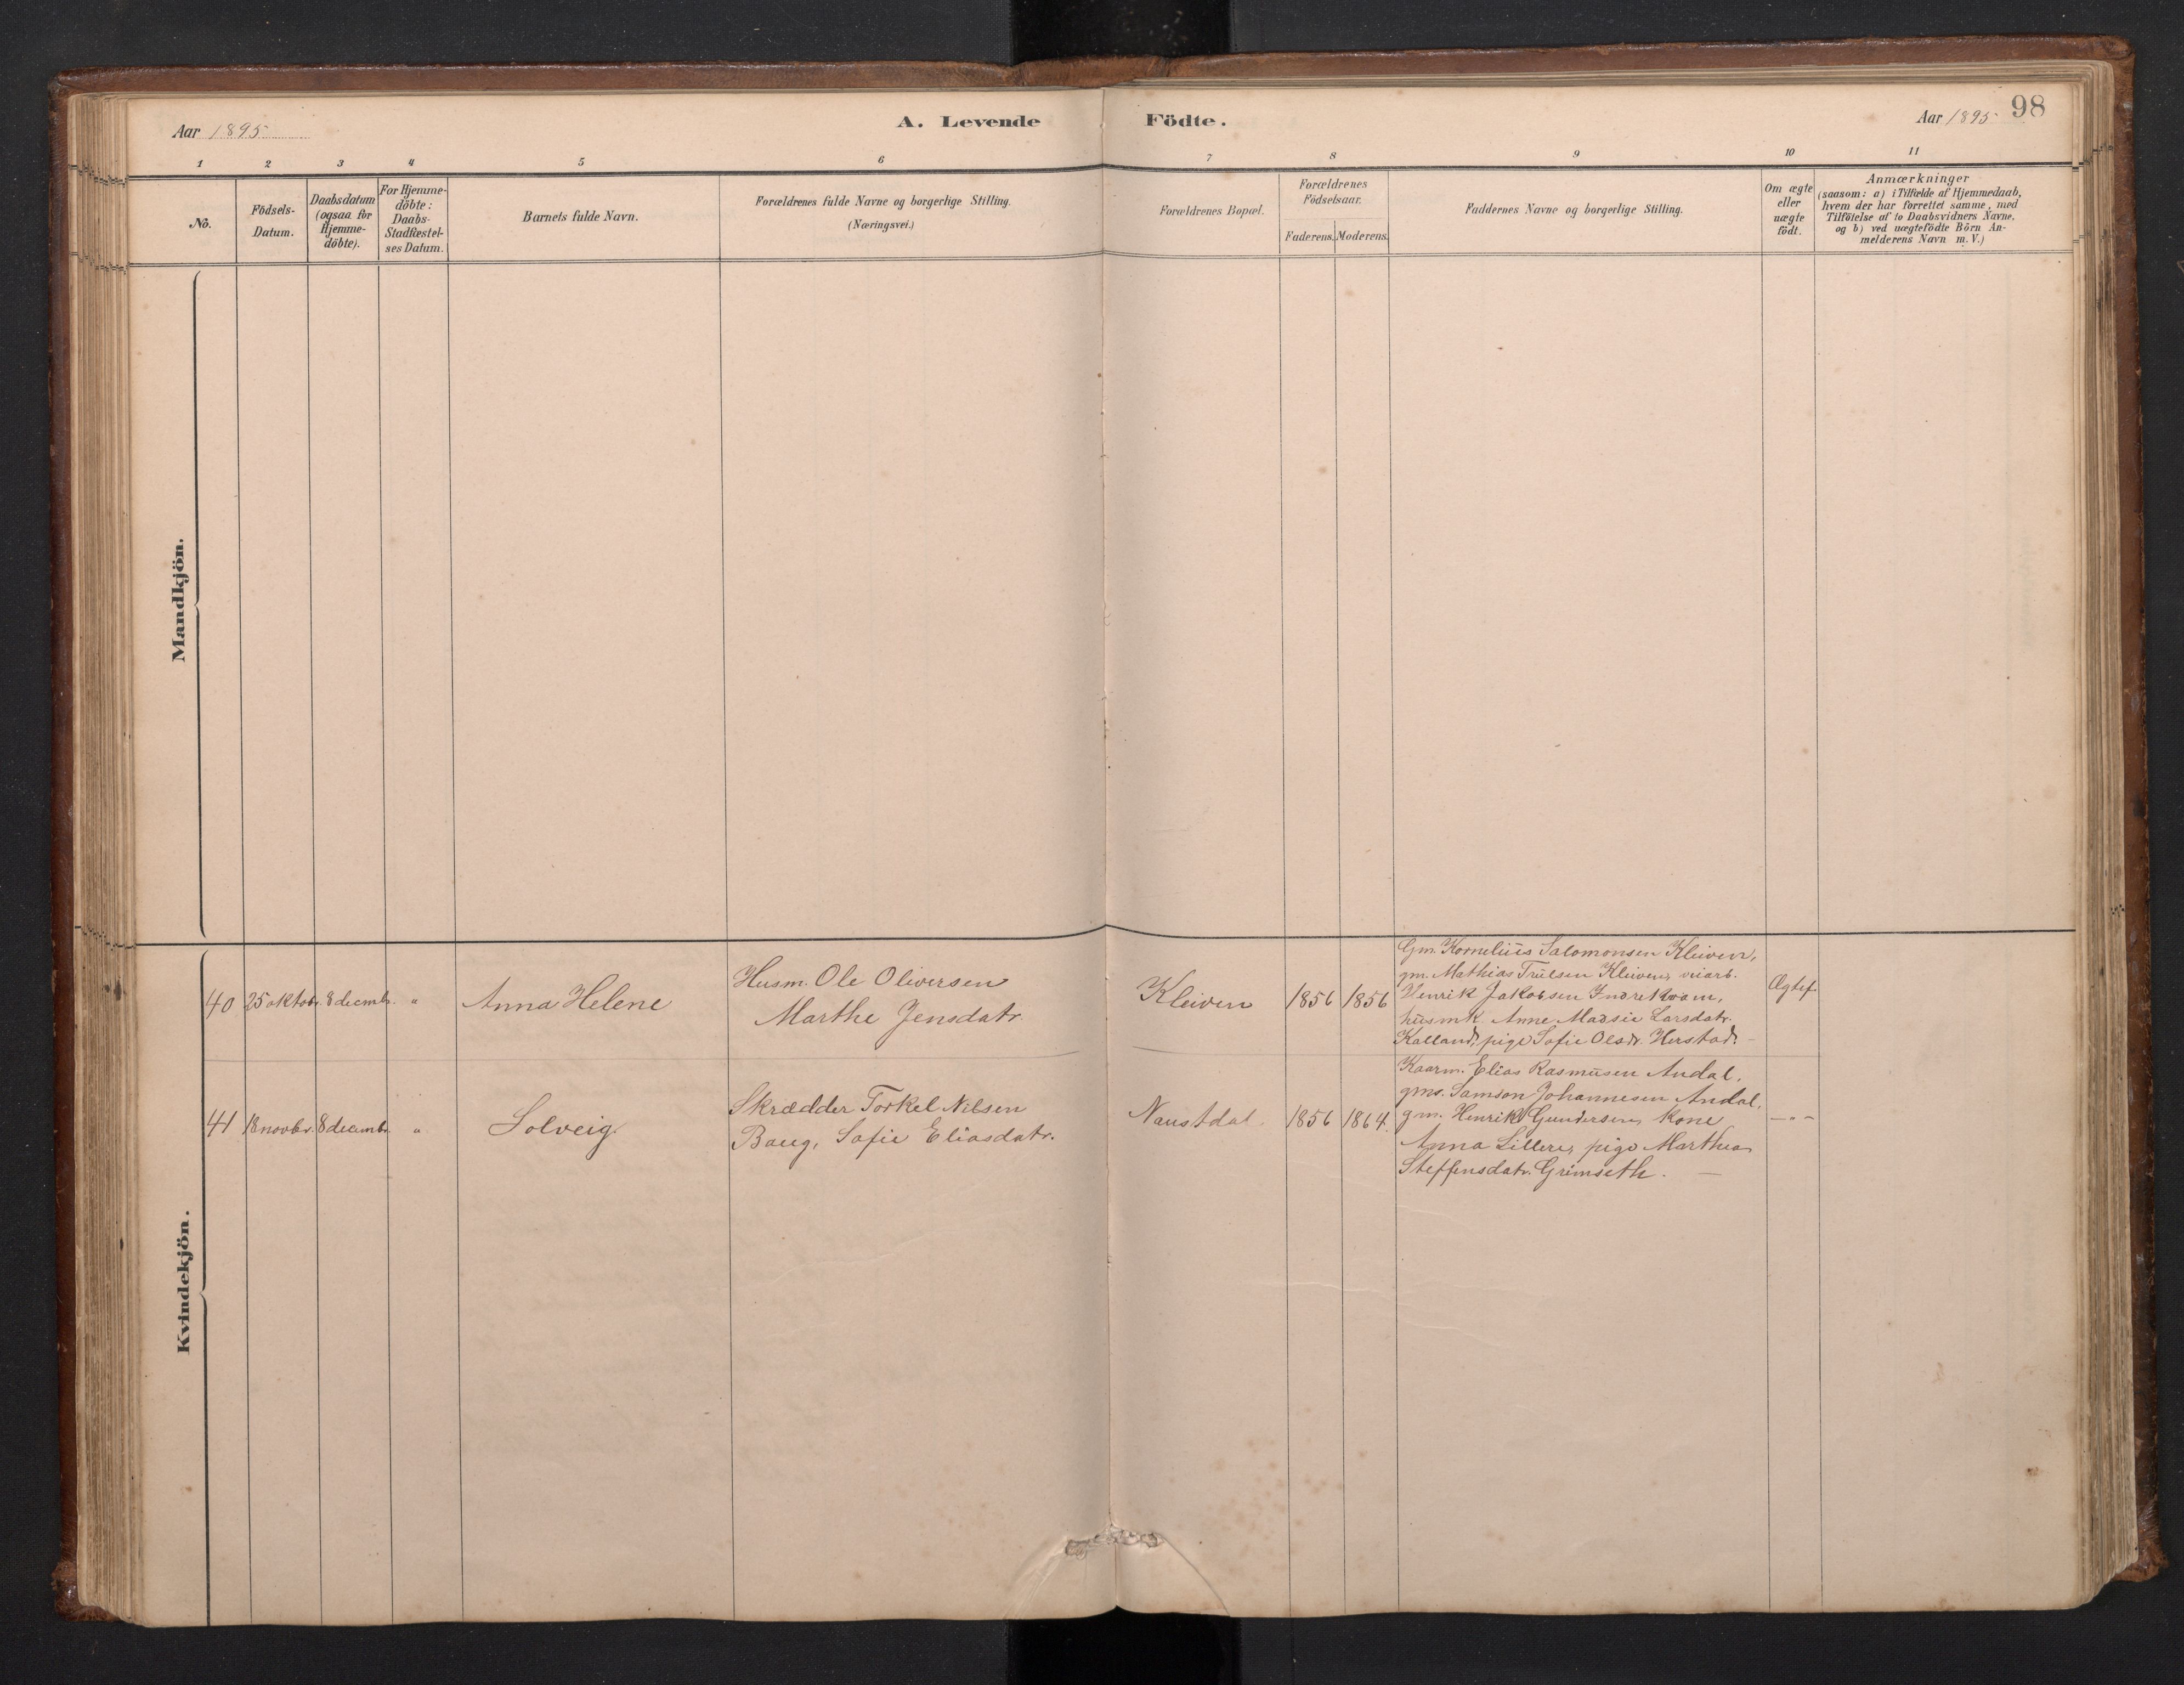 Aar 1895
A. Levende Födte.
Aar 1895
98
1 2 3 4 5 6 7 8 9 10 11
No.
Födsels-
Datum.
Daabsdatum
(ogsaa for
Hjemme-
döbte).
For Hjemme-
döbte:
Daabs-
Stadfæstel-
ses Datum.
Barnets fulde Navn.
Forældrenes fulde Navne og borgerlige Stilling.
(Næringsvei.)
Forældrenes Bopæl.
Forældrenes
Födselsaar.
Faderens. Moderens.
Faddernes Navne og borgerlige Stilling.
Om ægte
eller
uægte
födt.
Anmærkninger
(saasom: a) i Tilfælde af Hjemmedaab,
hvem der har forrettet samme, med
Tilföielse af to Daabsvidners Navne,
og b) ved uægtefödte Börn An-
melderens Navn m. V.)
Mandkjön.
Kvindekjön.
40
25 oktobr.
8 decmb.
"
Anna Helene
Husm. Ole Oliversen
Marthe Jensdatr.
Kleiven
1856
1856
Gm. Kornelius Salomonsen Kleiven,
gm. Mathias Trulsen Kleiven, veiarb.
Henrik Jakobsen Indrekvam,
husmk. Anne Madsie Larsdatr.
Kalland, pige Sofie Olsdr. Herstad. -
Ægtef.
41
18 novbr.
8 decemb.
"
Solveig
Skrædder Torkel Nilsen
Baug, Sofie Eliasdatr.
Naustdal.
1856
1864.
Kaarm. Elias Rasmusen Andal,
gms. Samson Johannesen Andal,
gm. Henrik Gundersens kone
Anna Lillere, pige Marthea
Steffensdatr. Grimseth. —
—"—